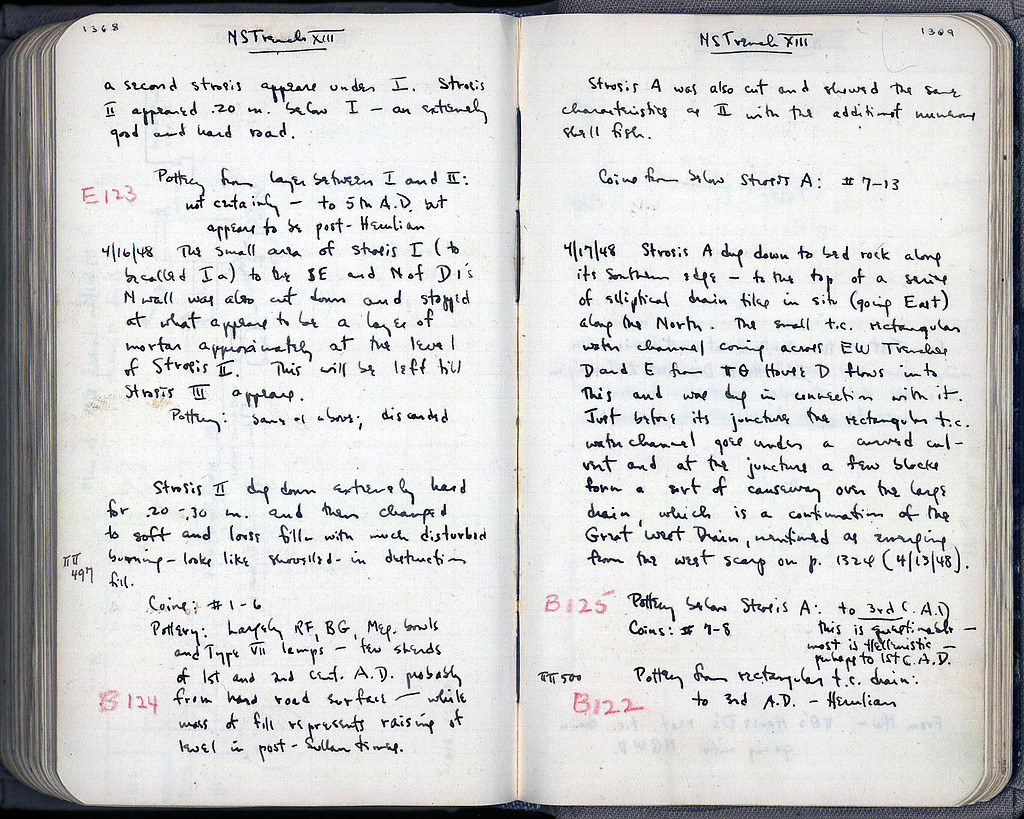 1368
NS Trench XIII
a second strosis appears under I. Strosis
II appeared .20 m. below I – an extremely
good and hard road.
Pottery from layer between I and II:
E 123
not certainly – to 5th A.D. but
appears to be post-Herulian
4/16/48 The small area of strosis I (to
be called I a) to the SE and N of D1's
N wall was also cut down and stopped
at what appears to be a layer of
mortar approximately at the level
of Strosis II. This will be left till
Strosis III appears.
Pottery: same as above; discarded
Strosis II dug down extremely hard
for .20 - .30 m. and then changed
to soft and loose fill with much disturbed
burning – looks like shovelled-in destruction
fill.
ΠΠ
497
Coins: # 1-6
Pottery: Largely RF, BG, Meg. bowls
and Type VII lamps – few sherds
of 1st and 2nd cent. A.D. probably
B 124
from hard road surface – while
mass of fill represents raising of
level in post-Sullan times.
1369
NS Trench XIII
Strosis A was also cut and showed the same
characteristics as II with the addition of numerous
shell fish.
Coins from below Strosis A: # 7-13
4/17/48 Strosis A dug down to bed rock along
its Southern edge – to the top of a series
of elliptical drain tiles in situ (going East)
along the North. The small t.c. rectangular
water channel coming across EW Trenches
D and E from ΠΘ House D flows into
this and was dug in connection with it.
Just before its juncture the rectangular t.c.
water channel goes under a curved cul-
vert and at the juncture a few blocks
form a sort of causeway over the large
drain, which is a continuation of the
Great West Drain, mentioned as emerging
from the west scarp on p. 1324 (4/13/48).
B 125
Pottery below Strosis A: to 3rd C. A.D
Coins: # 7-8
this is questionable –
most is Hellenistic –
perhaps to 1st C. A.D.
ΠΠ 500
Pottery from rectangular t.c. drain:
B 122
to 3rd A.D. – Herulian